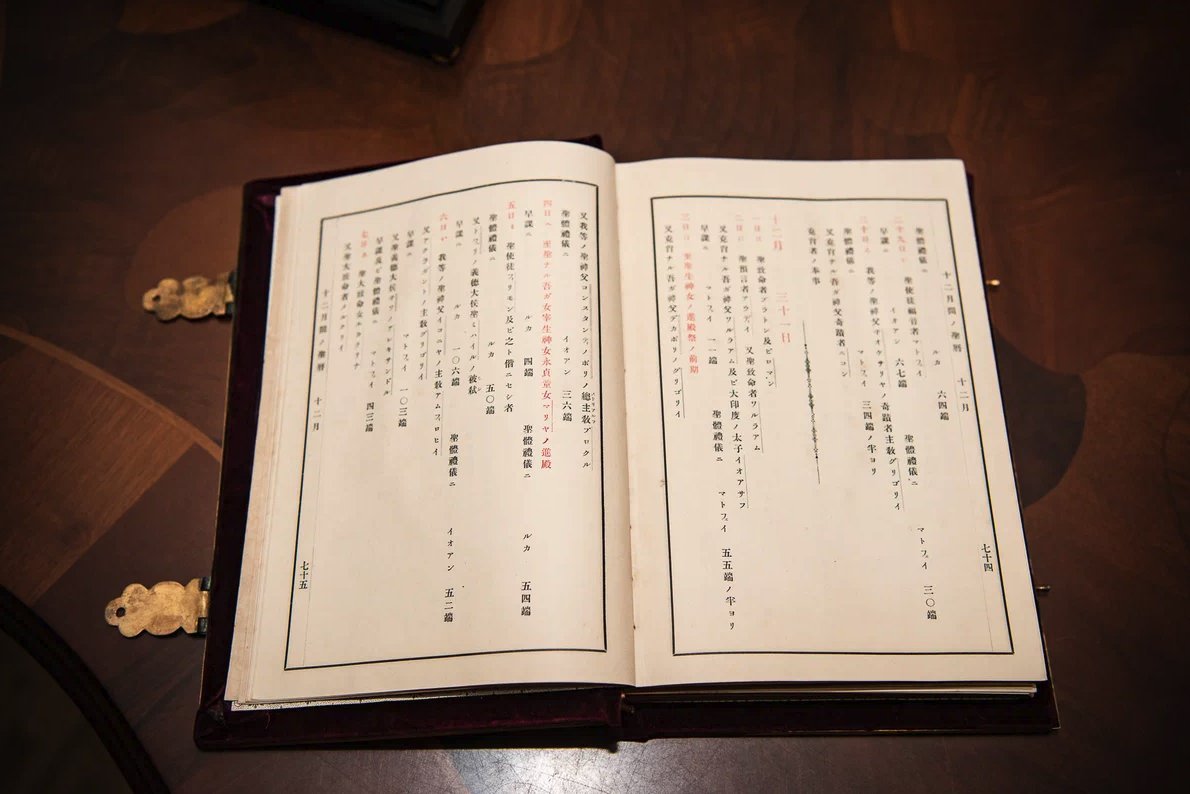 十二月間ノ聖暦　十二月
七十四
ルカ　六四端
聖體禮儀ニ
聖使徒福音者マトフェイ　聖體禮儀ニ　マトフェイ　三〇端
早課ニ　イオアン　六七端
三十日　我等ノ聖神父ネオケサリヤノ奇蹟者主教グリゴリイ
聖體禮儀ニ　マトフェイ　三四端ノ半ヨリ
又克肖ナル吾ガ神父奇蹟者ニコン
克肖者ノ奉事
十二月　三十一日
一日　聖致命者プラトン及ビロマン
二日　聖預言者アウディイ　又聖致命者ワルラアム
又克肖ナル吾ガ神父ワルラアム及ビ大印度ノ太子イオアサフ
早課ニ　マトフェイ　一一端　聖體禮儀ニ　マトフェイ　五五端ノ半ヨリ
三日　至聖生神女ノ進殿祭ノ前期
又克肖ナル吾ガ神父デカポリノグリゴリイ
又我等ノ聖神父コンスタンティノポリノ總主教プロクル
聖體禮儀ニ　イオアン　三六端
四日　至聖ナル吾ガ女宰生神女永貞童女マリヤノ進殿
早課ニ　ルカ　四端　聖體禮儀ニ　ルカ　五四端
五日　聖使徒フィリモン及ビ之ト偕ニセシ者
聖體禮儀ニ　ルカ　五〇端
又トワェリノ義德大侯聖ミハイルノ被弑
早課ニ　ルカ　一〇六端　聖體禮儀ニ　イオアン　五二端
六日　我等ノ聖神父イコニヤノ主教アムフィロヒイ
又アクラガントノ主教グリゴリイ
早課ニ　マトフェイ　一〇三端
又聖義德大侯ネワノアレキサンドル
早課及ビ聖體禮儀ニ　マトフェイ　四三端
七日　聖大致命女エカテリナ
又聖大致命者メルクリイ
十二月間ノ聖暦　十二月
七十五